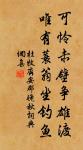 可怜赤壁争雄渡
唯有蓑翁坐钓鱼
杜牧齐安郡晚秋词典
网集